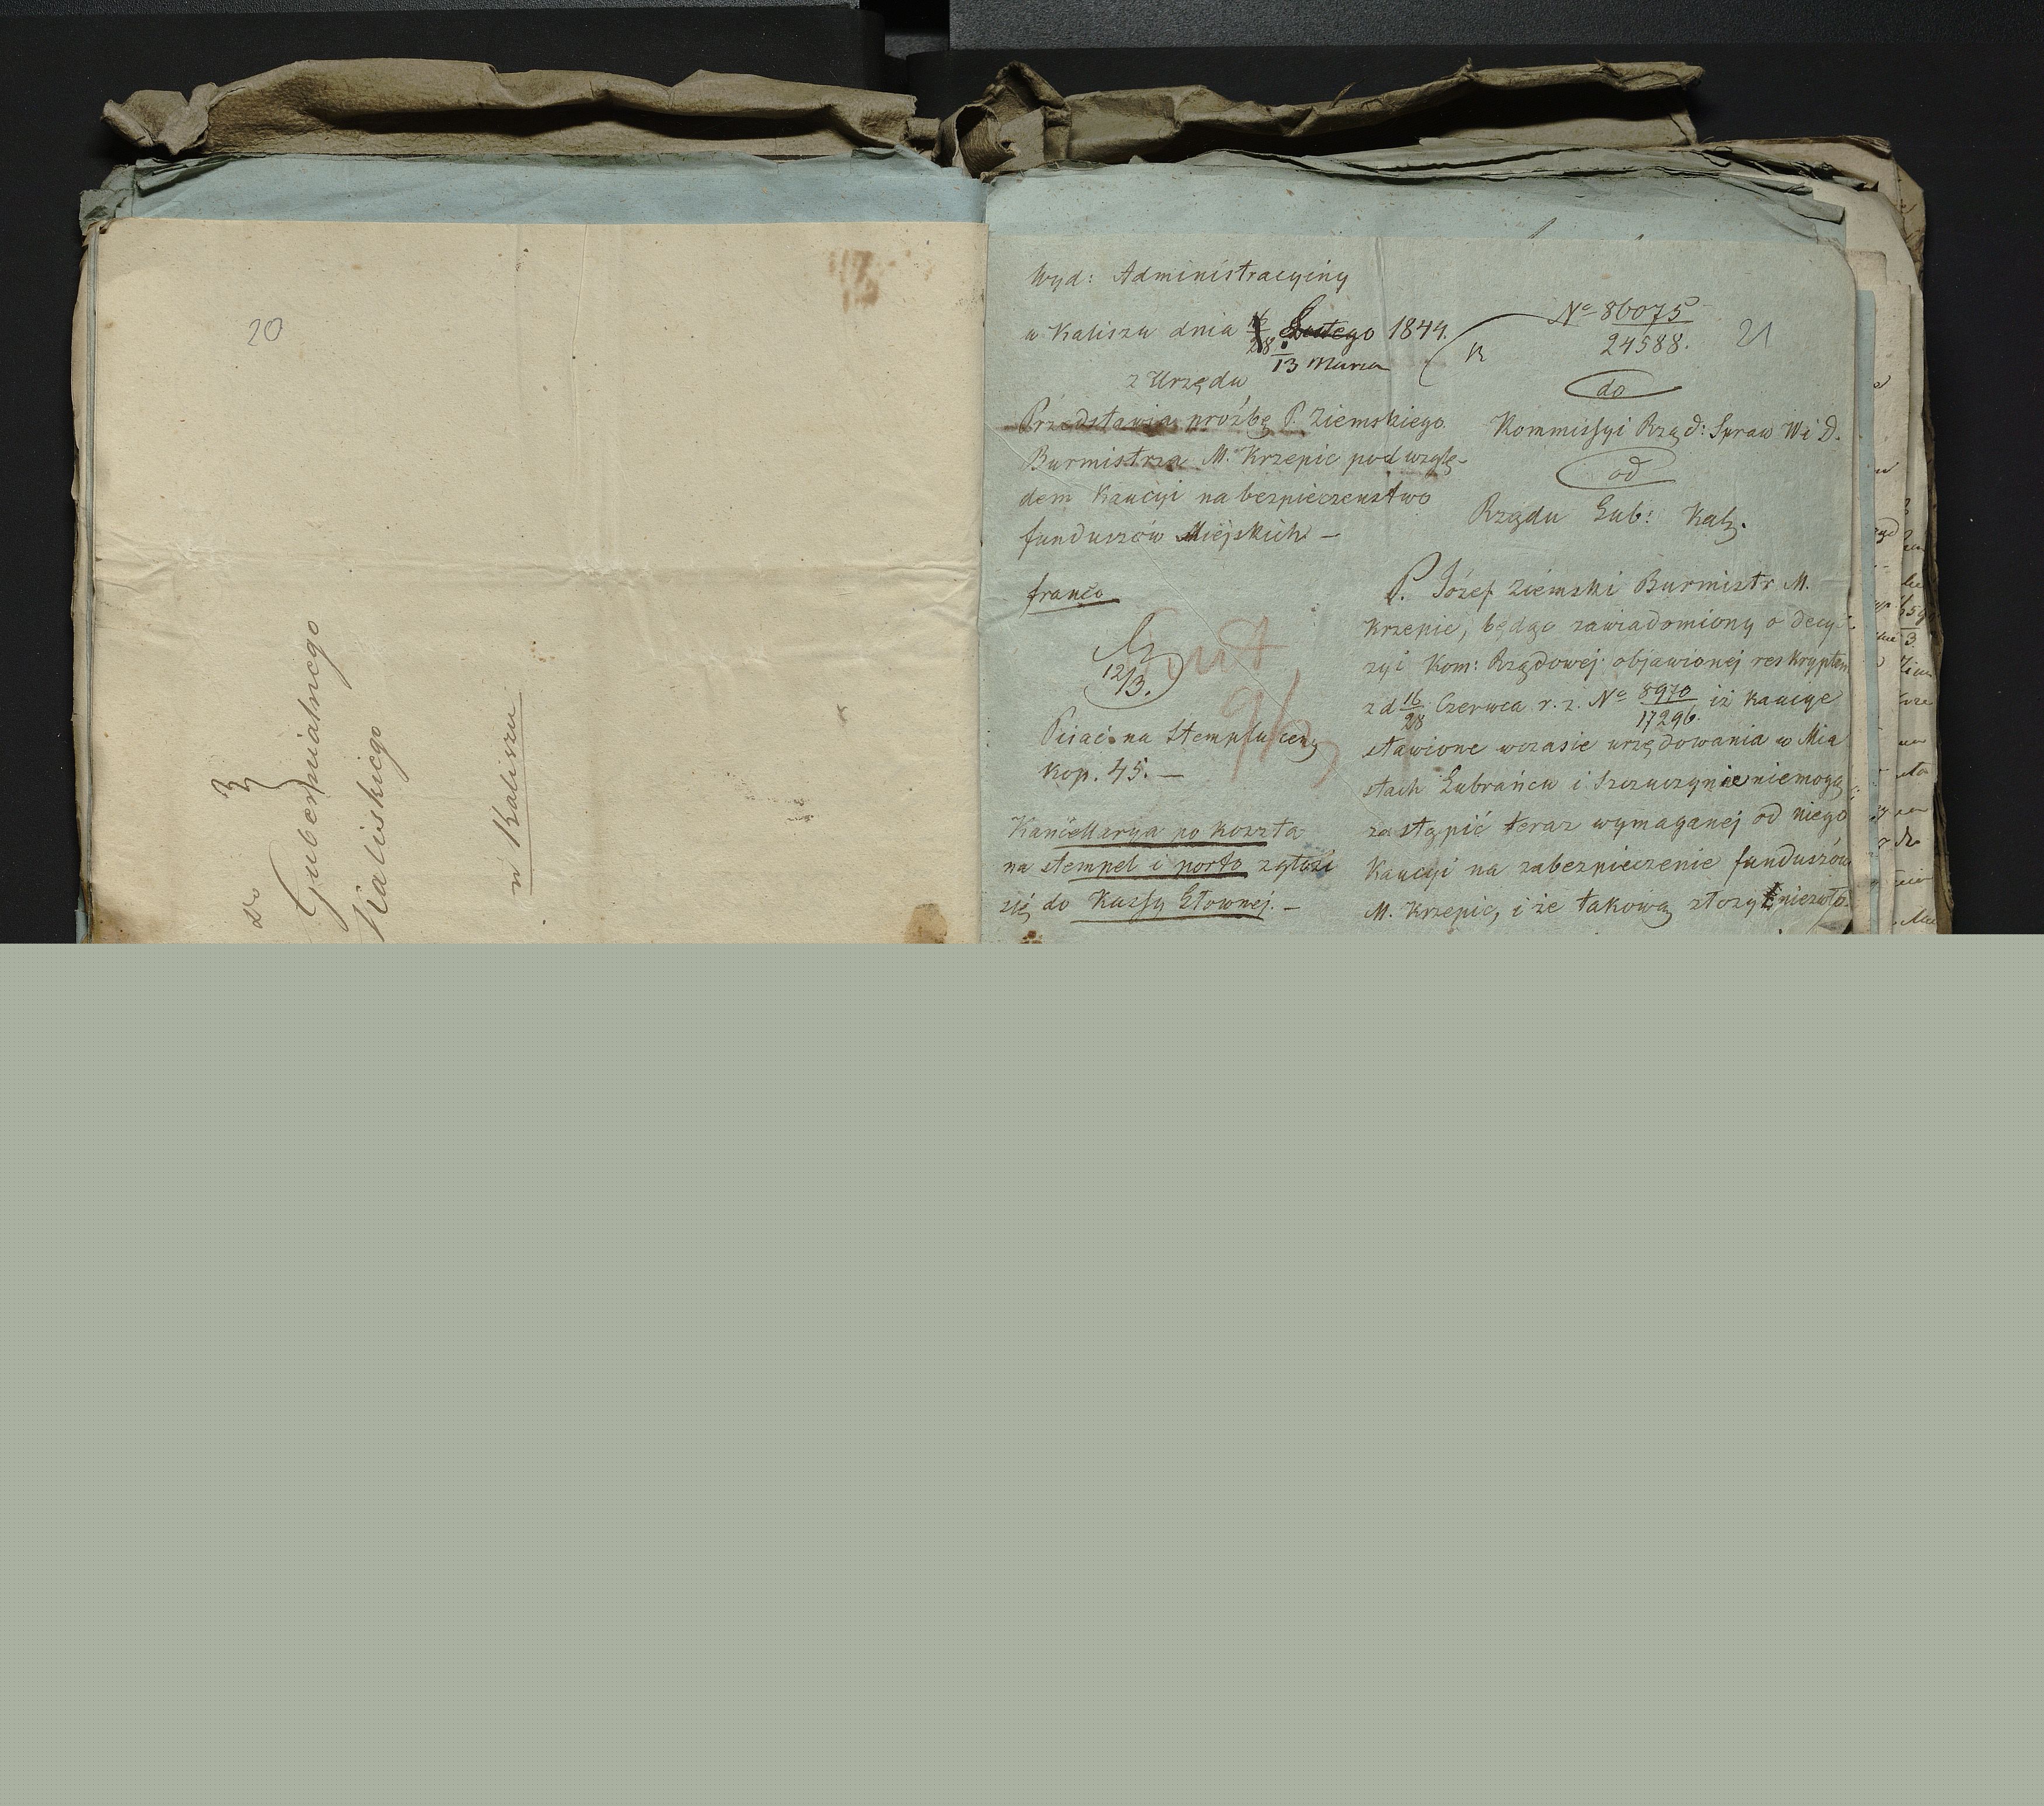 20
do
Gubernialnego
Kaliskiego
w Kaliszu
Wyd: Administracyiny
w Kaliszu dnia 16/28 Lutego 1844.
1/13 Marca
z Urzędu
Przedstawia proźbę P. Ziemskiego
Burmistrza M. Krzepic pod wzglę-
dem Kaucyi na bezpieczenstwo
funduszów Miejskich —
franco
12/3.
Pisać na Stemplu ceny
Kop. 45. —
Kancellarya po koszta
na stempel i porto zgłosi
się do Kassy Głownej. —
No 86075/24588.
21
do
Kommissyi Rząd: Spraw W i D.
od
Rządu Gub: Kalz.
P. Józef Ziemski Burmistr M.
Krzepic, będąc zawiadomiony o decy-
zyi Kom: Rządowej objawionej reskryptem
z d 16/28 Czerwca r. z. No 8970/17296. iż kaucye
stawione w czasie urzędowania w Mia
stach Lubrańcu i Szczuczynie niemogą
zastąpić teraz wymaganej od niego
Kaucyi na zabezpieczenie funduszów
M. Krzepic, i że takową złożyć niezwło-